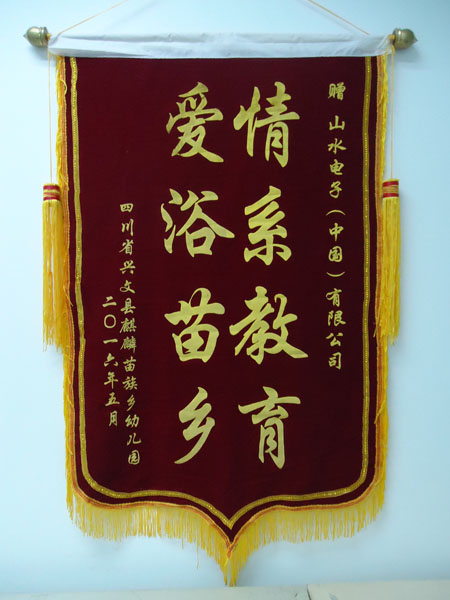 赠 山水电子（中国）有限公司
情系教育
爱浴苗乡
四川省兴文县麒麟苗族乡幼儿园
二〇一六年五月